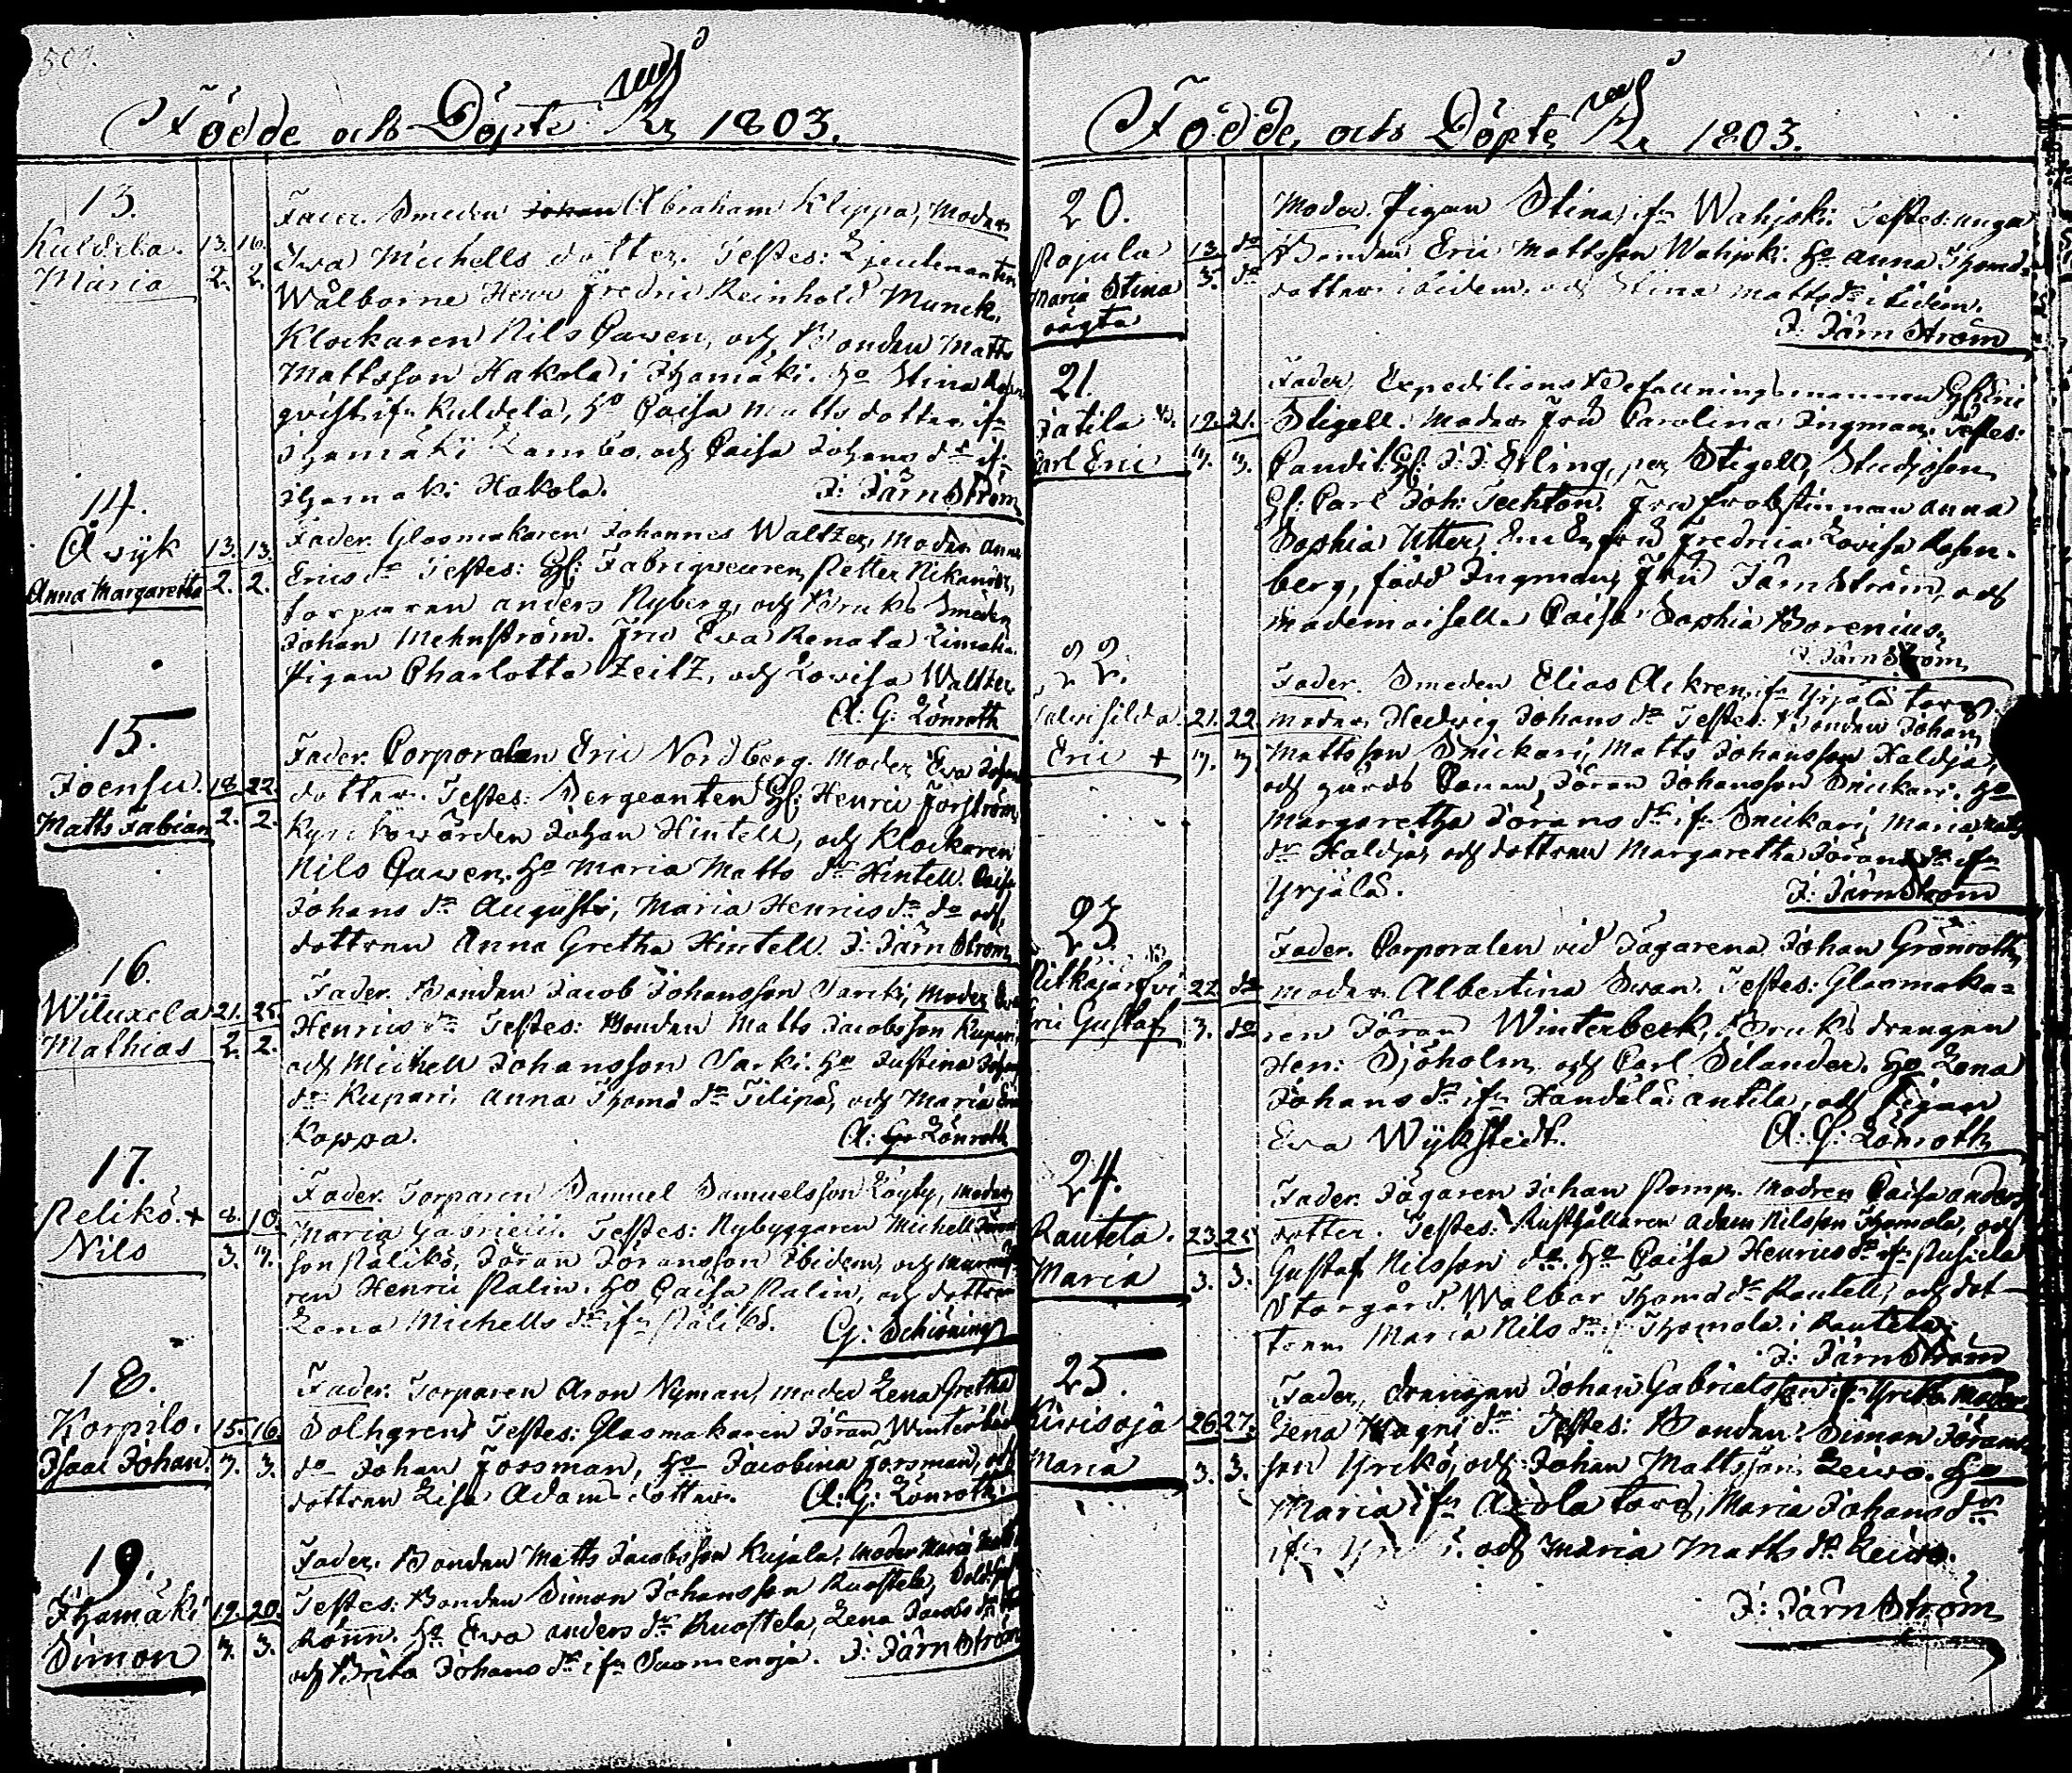 Födde och Döpte År 1803.
13.
Kuldela. 13. 16.
Maria 2. 2.
Fader. Smeden Johan Abraham Klippa, Moder
Ewa Michells dotter. Testes: Lieutenanten
Wälborne Herr Fredric Reinhold Munck,
Klockaren Nils Cawen, och Bonden Matts
Mattsson Hakola i Ihamäki. Ho Stina
qvist ifn Kuldela, Ho Caisa Matts dotter ifn
Ihamäki Lambo, och Caisa Johans dr ifn
Ihamäki Hakola. J: JärnStröm
14.
Åvijk 13. 13.
Anna Margaretha 2. 2.
Fader. Glasmakaren Johannes Waltzer, Moder Anna
Erics dr Testes: Hr: Fabriqueuren Petter Nikander,
torparen Anders Nyberg, och Bruks Smeden
Johan Mehnström. Fru Eva Renata
Pigan Charlotta Zeitz, och Lovisa Waltzer.
A: G: Lönroth
15.
Joensu. 18. 22.
Matts Fabian 2. 2.
Fader. Corporalen Eric Nordberg. Moder Eva Johans
dotter. Testes: Sergeanten Hr: Henric Forström,
Kyrckowärden Johan Hintell, och Klockaren
Nils Cawen. Ho Maria Matts dr Hintell. Caisa
Johans dr Augusti, Maria Henrics dr do och
dottren Anna Gretha Hintell. J: JärnStröm
16.
Wiluxela 21. 25.
Mathias 2. 2.
Fader. Bonden Jacob Johansson Sarki, Moder Eva
Henrics dr Testes: Bonden Matts Jacobsson Kupari,
och Michell Johansson Sarki. Ho Justina Johans
dr Kupari, Anna Thoms dr Tilipa, och Maria
Kappa. A: G: Lönroth
17.
Peliko. + 8. 10.
Nils 3. 3.
Fader. Torparen Samuel Samuelsson Löyty, Moder
Maria Gabriels. Testes: Nybyggaren Michell
son Päliko, Jöran Jöransson Ibidem, och
ren Henric Palin. Ho Caisa Palin, och dottren
Lena Michells dr ifn Päliko. G: Schröning
18.
Korpilo. 15. 16.
Isaac Johan 3. 3.
Fader. Torparen Aron Nyman, Moder Lena Gretha
Dolhgren Testes: Glasmakaren Jöran Winterbäck
do Johan Forssman, Ho Jacobina Forsman, och
dottren Lisa Adams dotter. A: G: Lönroth
19.
Ihamäki 19. 20.
Simon 3. 3.
Fader. Bonden Matts Jacobsson Kujala, Moder Maria
Testes: Bonden Simon Johansson Ruostela, Sold:
Rönn. Ho Ewa Anders dr Ruostela, Lena Jacobs dr
och Brita Johans dr ifn Suomenoja. J: JärnStröm
Födde och Döpte År 1803.
20.
Pajula 13. do
Maria Stina 3. do
oägta
Moder. Pigan Stina ifn Wahjoki. Testes: unga
Bonden Eric Mattsson Wahjoki. Ho Anna Thoms
dotter ibidem, och Stina Matts dr ibidem.
J: JärnStröm
21.
Jätila 19. 21.
Carl Eric 3. 3.
Fader. Expeditions Befallningsmannen Hr: Eric
Stigell. Moder Fru Carolina Ingman. Testes:
Candit: Hr: J: J: Erling, Stigell, Studiosen
Hr: Carl Joh: Techton. Fru Probstinnan Anna
Sophia Utter, Enke Fru Fredrica Lovisa Rosen-
berg, född Ingman, Fru JärnStröm, och
Mademoiselle Caisa Sophia Borenius.
J: JärnStröm
22.
Talvisilda 21. 22.
Eric + 3. 3
Fader. Smeden Elias Ackren ifn Yrjälä torp.
Moder Hedwig Johans dr Testes: Bonden Johan
Mattsson Snickari, Matts Johansson Haldja,
och gårds Jöran Johansson Snickari. Ho
Margaretha Jörans dr ifn Snickari, Maria Matts
dr Haldja, och dottren Margaretha Jörans dr ifn
Yrjälä. J: JärnStröm
23.
Pitkäjärfvi 22. do
Eric Gustaf 3. do
Fader. Corporalen vid Jägarena Johan Grönroth,
Moder Albertina Swan. Testes: Glasmaka=
ren Jöran Winterbeck, Bruks drengen
Hen: Sjöholm och Carl Silander. Ho Lena
Johans dr ifn Handälä Antila, och Pigan
Eva Wijkstedt. A: G: Lönroth
24.
Rautela. 23. 25
Maria 3. 3.
Fader. Jägaren Johan Pomp. Modren Caisa Anders
dotter. Testes: Rusthållaren Adam Nilsson Thomola, och
Gustaf Nilsson do. Ho Caisa Henrics dr ifn Pusula
Storgård. Walbor Thoms dr Rautell, och dot-
tren Maria Nils dr Thomola i Rautela.
J: JärnStröm
25.
Kivisoja 26. 27.
Maria 3. 3.
Fader, drengen Johan Gabrielsson ifn Yrikö Moder
Lena Magni dr Testes: Bonden Simon Jörans
son Yrikö, och Johan Mattsson Leivo. Ho
Maria ifn Axola torp, Maria Johans dr
ifn och Maria Matts dr Leivo.
J: JärnStröm